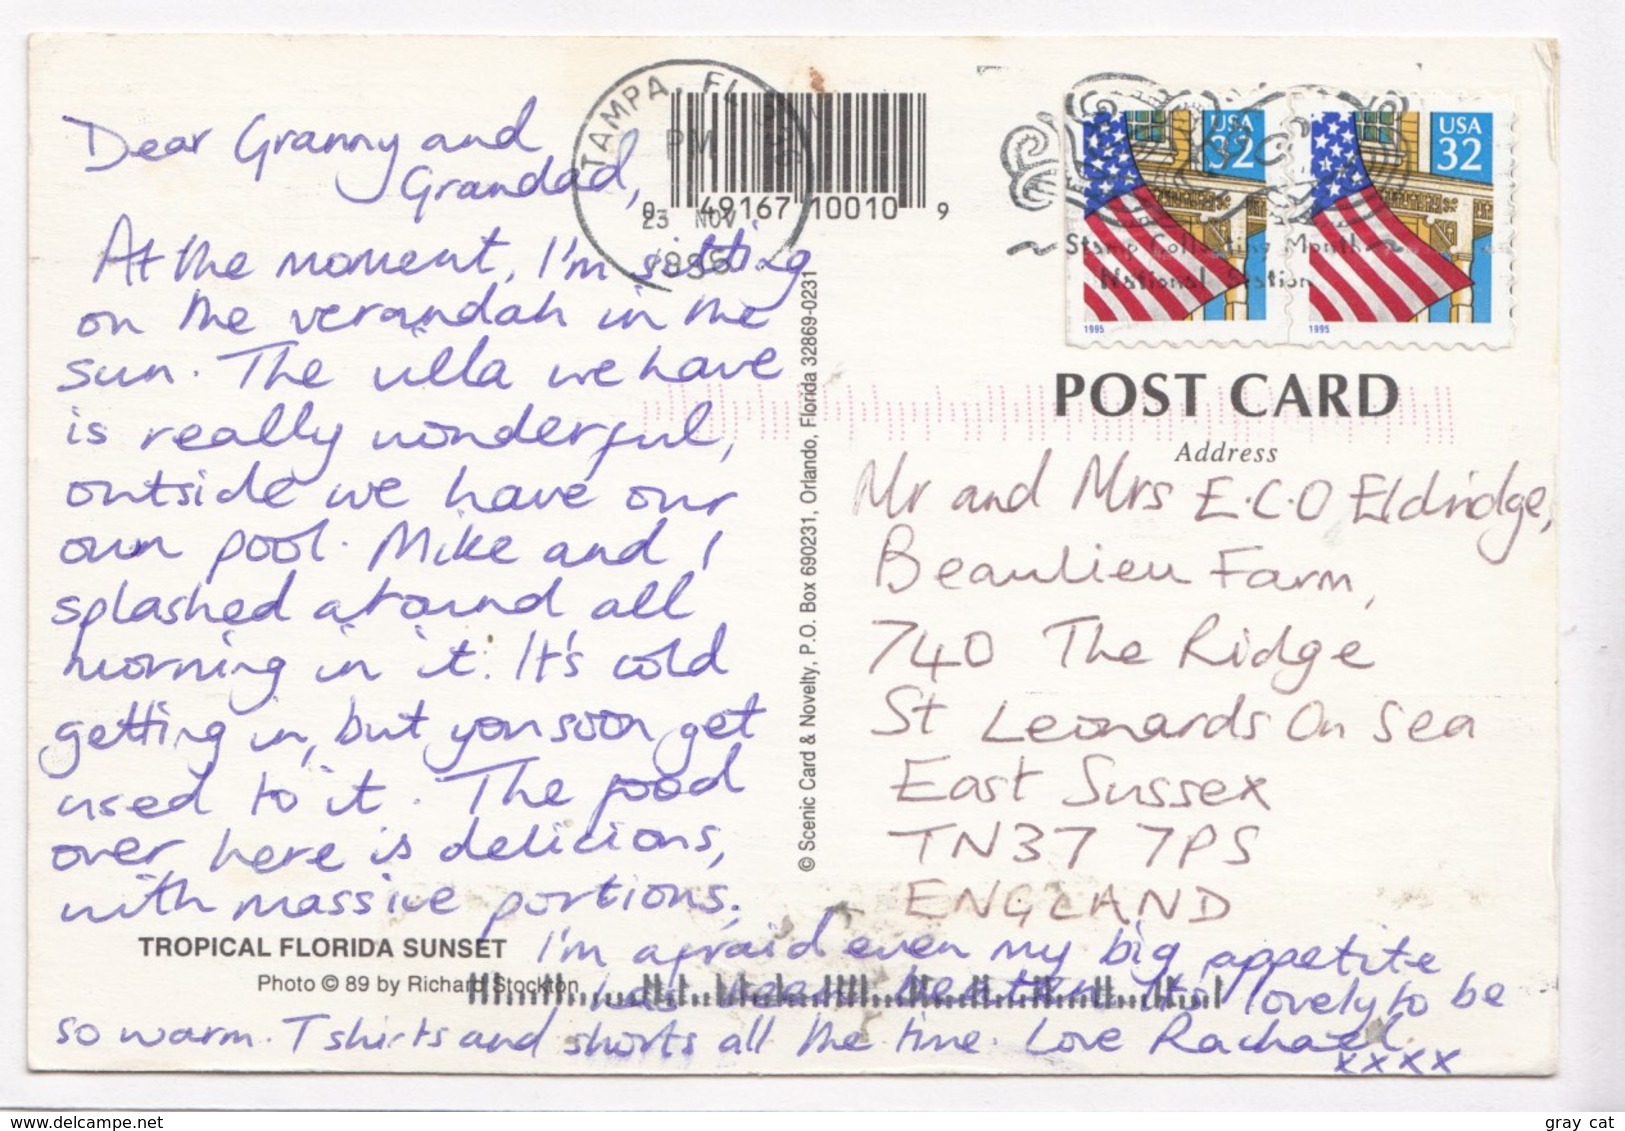 Dear Granny and
Grandad,
At the moment, I'm sitting
on the verandah in the
sun. The villa we have
is really wonderful,
outside we have our
own pool. Mike and I
splashed around all
morning in it. It's cold
getting in, but you soon get
used to it. The food
over here is delicious,
with massive portions.
I'm afraid even my big appetite
has been beaten. It's lovely to be
so warm. T shirts and shorts all the time. Love Rachael.
xxxx
TROPICAL FLORIDA SUNSET
Photo © 89 by Richard Stockton
© Scenic Card & Novelty, P.O. Box 690231, Orlando, Florida 32869-0231
TAMPA, FL
PM
23 NOV
1995
0 49167 10010 9
USA
32
1995
USA
32
1995
Stamp Collecting Month
National Station
POST CARD
Address
Mr and Mrs E.C.O Eldridge,
Beaulieu Farm,
740 The Ridge
St Leonards On Sea
East Sussex
TN37 7PS
ENGLAND
delcampe.net
gray cat